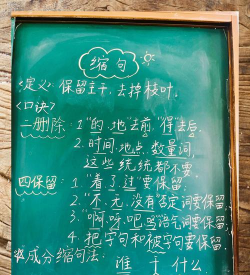 缩句
<定义> 保留主干,去掉枝叶.
<口诀>
二删除: 1."的,地"去前,"得"去后.
2.时间,地点,数量词,
这些统统都不要.
四保留: 1."着了过"要保留.
2."不,无,没有"否定词要保留.
3."啊,呀,吧,吗"语气词要保留.
4.把字句和被字句要保留.
*成分缩句法:
谁 干 什么